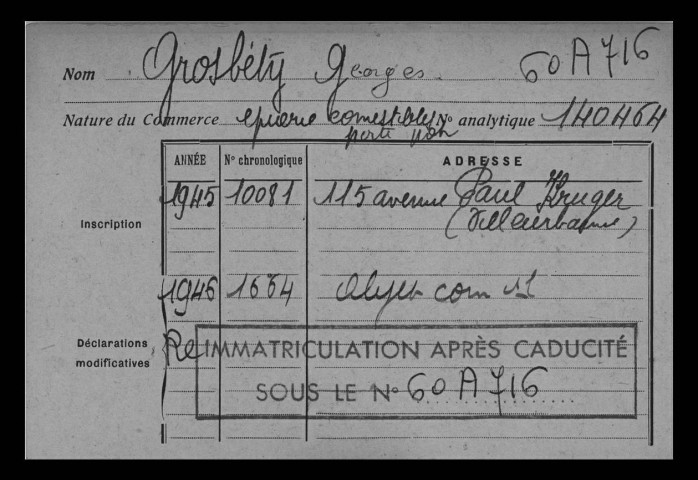 Nom Grosbéty Georges 60 A 716
Nature du Commerce épicerie comestibles N° analytique 140464
porte pon
ANNÉE N° chronologique ADRESSE
Inscription 1945 10081 115 avenue Paul Kruger
(Villeurbanne)
1946 1664 com
Déclarations modificatives
Re IMMATRICULATION APRÈS CADUCITÉ
SOUS LE N° 60 A 716